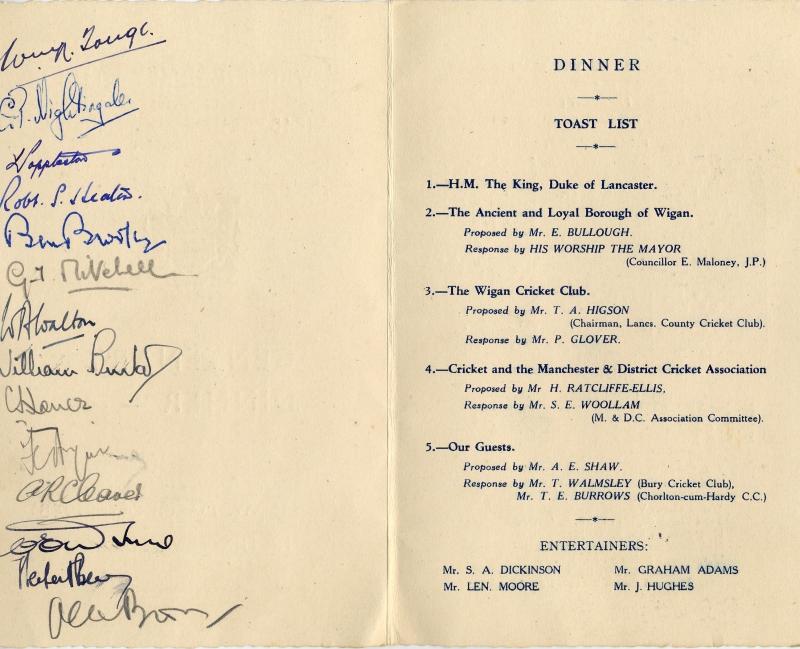 Nightingale
Robt. S. Heaton.
G. T. Mitchell
Walton
William
DINNER
TOAST LIST
1.—H.M. The King, Duke of Lancaster.
2.—The Ancient and Loyal Borough of Wigan.
Proposed by Mr. E. BULLOUGH.
Response by HIS WORSHIP THE MAYOR
(Councillor E. Maloney, J.P.)
3.—The Wigan Cricket Club.
Proposed by Mr. T. A. HIGSON
(Chairman, Lancs. County Cricket Club).
Response by Mr. P. GLOVER.
4.—Cricket and the Manchester & District Cricket Association
Proposed by Mr H. RATCLIFFE-ELLIS,
Response by Mr. S. E. WOOLLAM
(M. & D.C. Association Committee).
5.—Our Guests.
Proposed by Mr. A. E. SHAW.
Response by Mr. T. WALMSLEY (Bury Cricket Club),
Mr. T. E. BURROWS (Chorlton-cum-Hardy C.C.)
ENTERTAINERS:
Mr. S. A. DICKINSON Mr. GRAHAM ADAMS
Mr. LEN. MOORE Mr. J. HUGHES